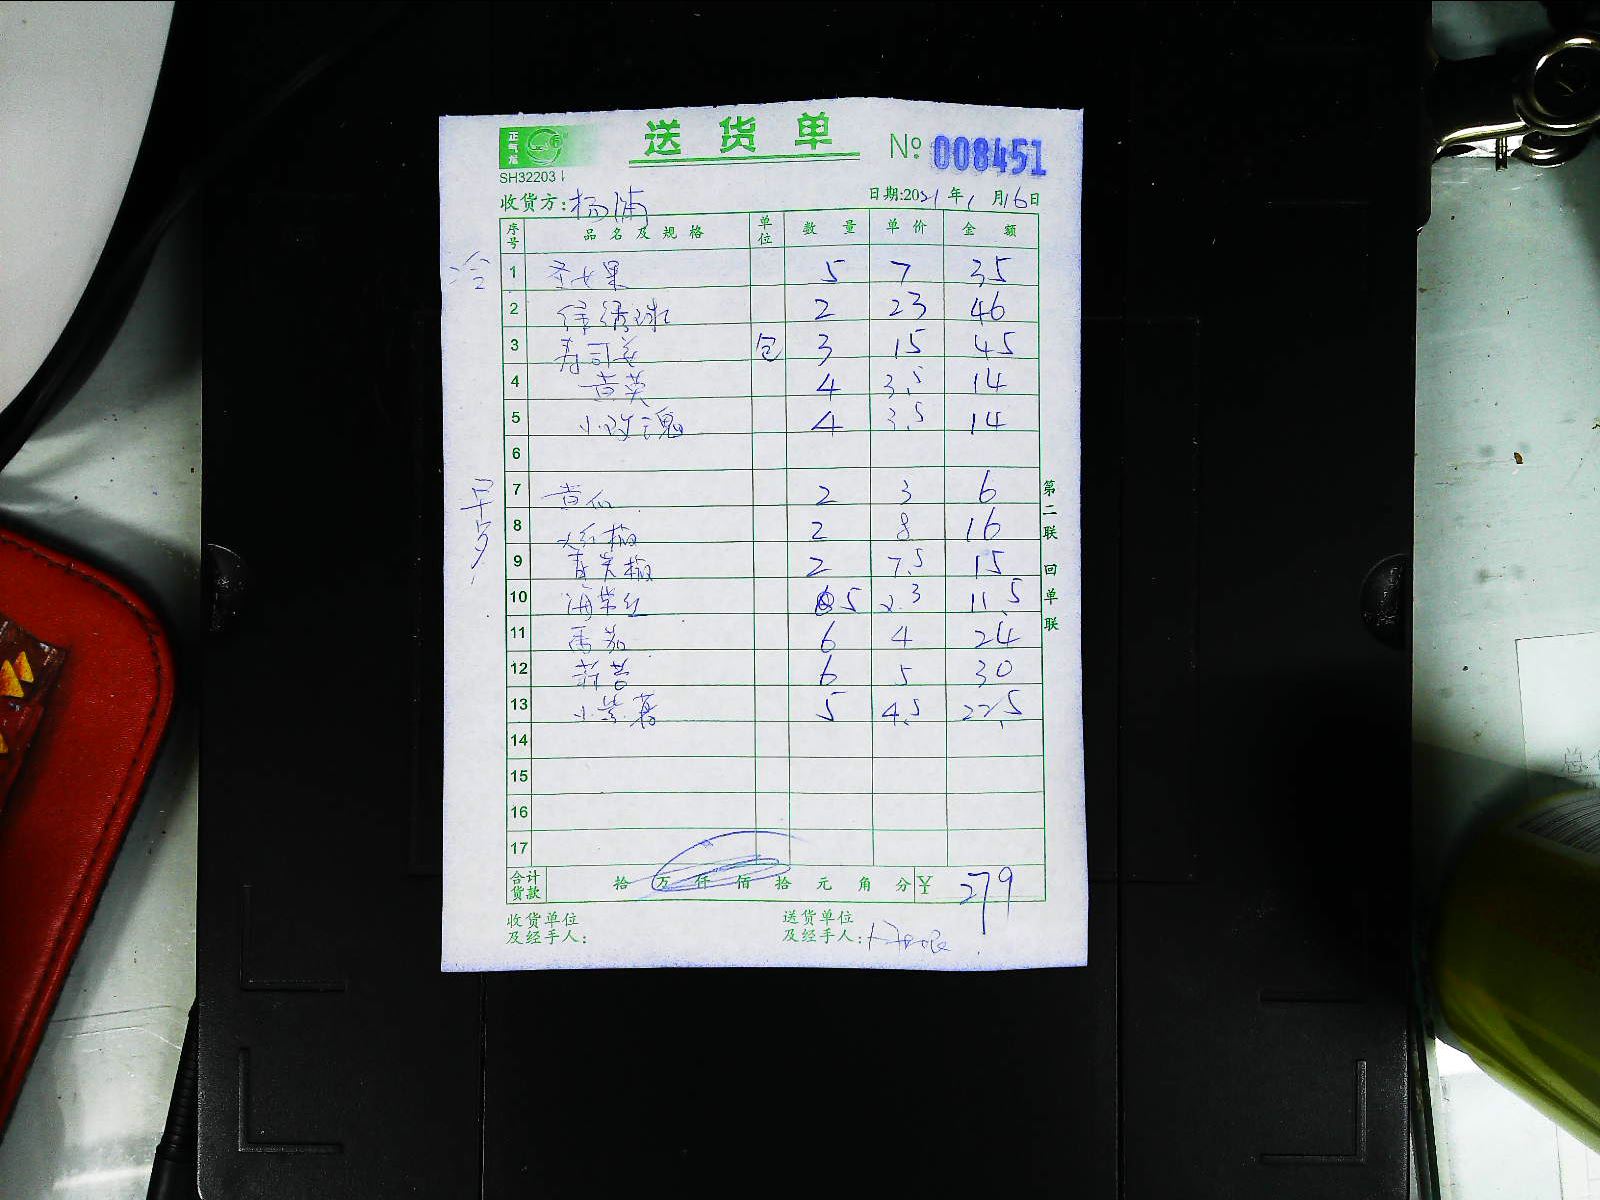 正气龙
送货单
№ 008451
SH32203
收货方:杨浦 日期:2021年1月16日
序号 品名及规格 单位 数量 单价 金额
冷
1 圣女果 5 7 35
2 绿绣球 2 23 46
3 寿司姜 包 3 15 45
4 黄英 4 3.5 14
5 小玫瑰 4 3.5 14
6
早点
7 黄瓜 2 3 6
8 大红椒 2 8 16
9 青尖椒 2 7.5 15
10 5 2.3 11.5
11 番茄 6 4 24
12 6 5 30
13 小紫薯 5 4.5 22.5
14
15
16
17
合计货款 拾万仟佰拾元角分 ¥ 279
收货单位及经手人:
送货单位及经手人:
第二联 回单联
总